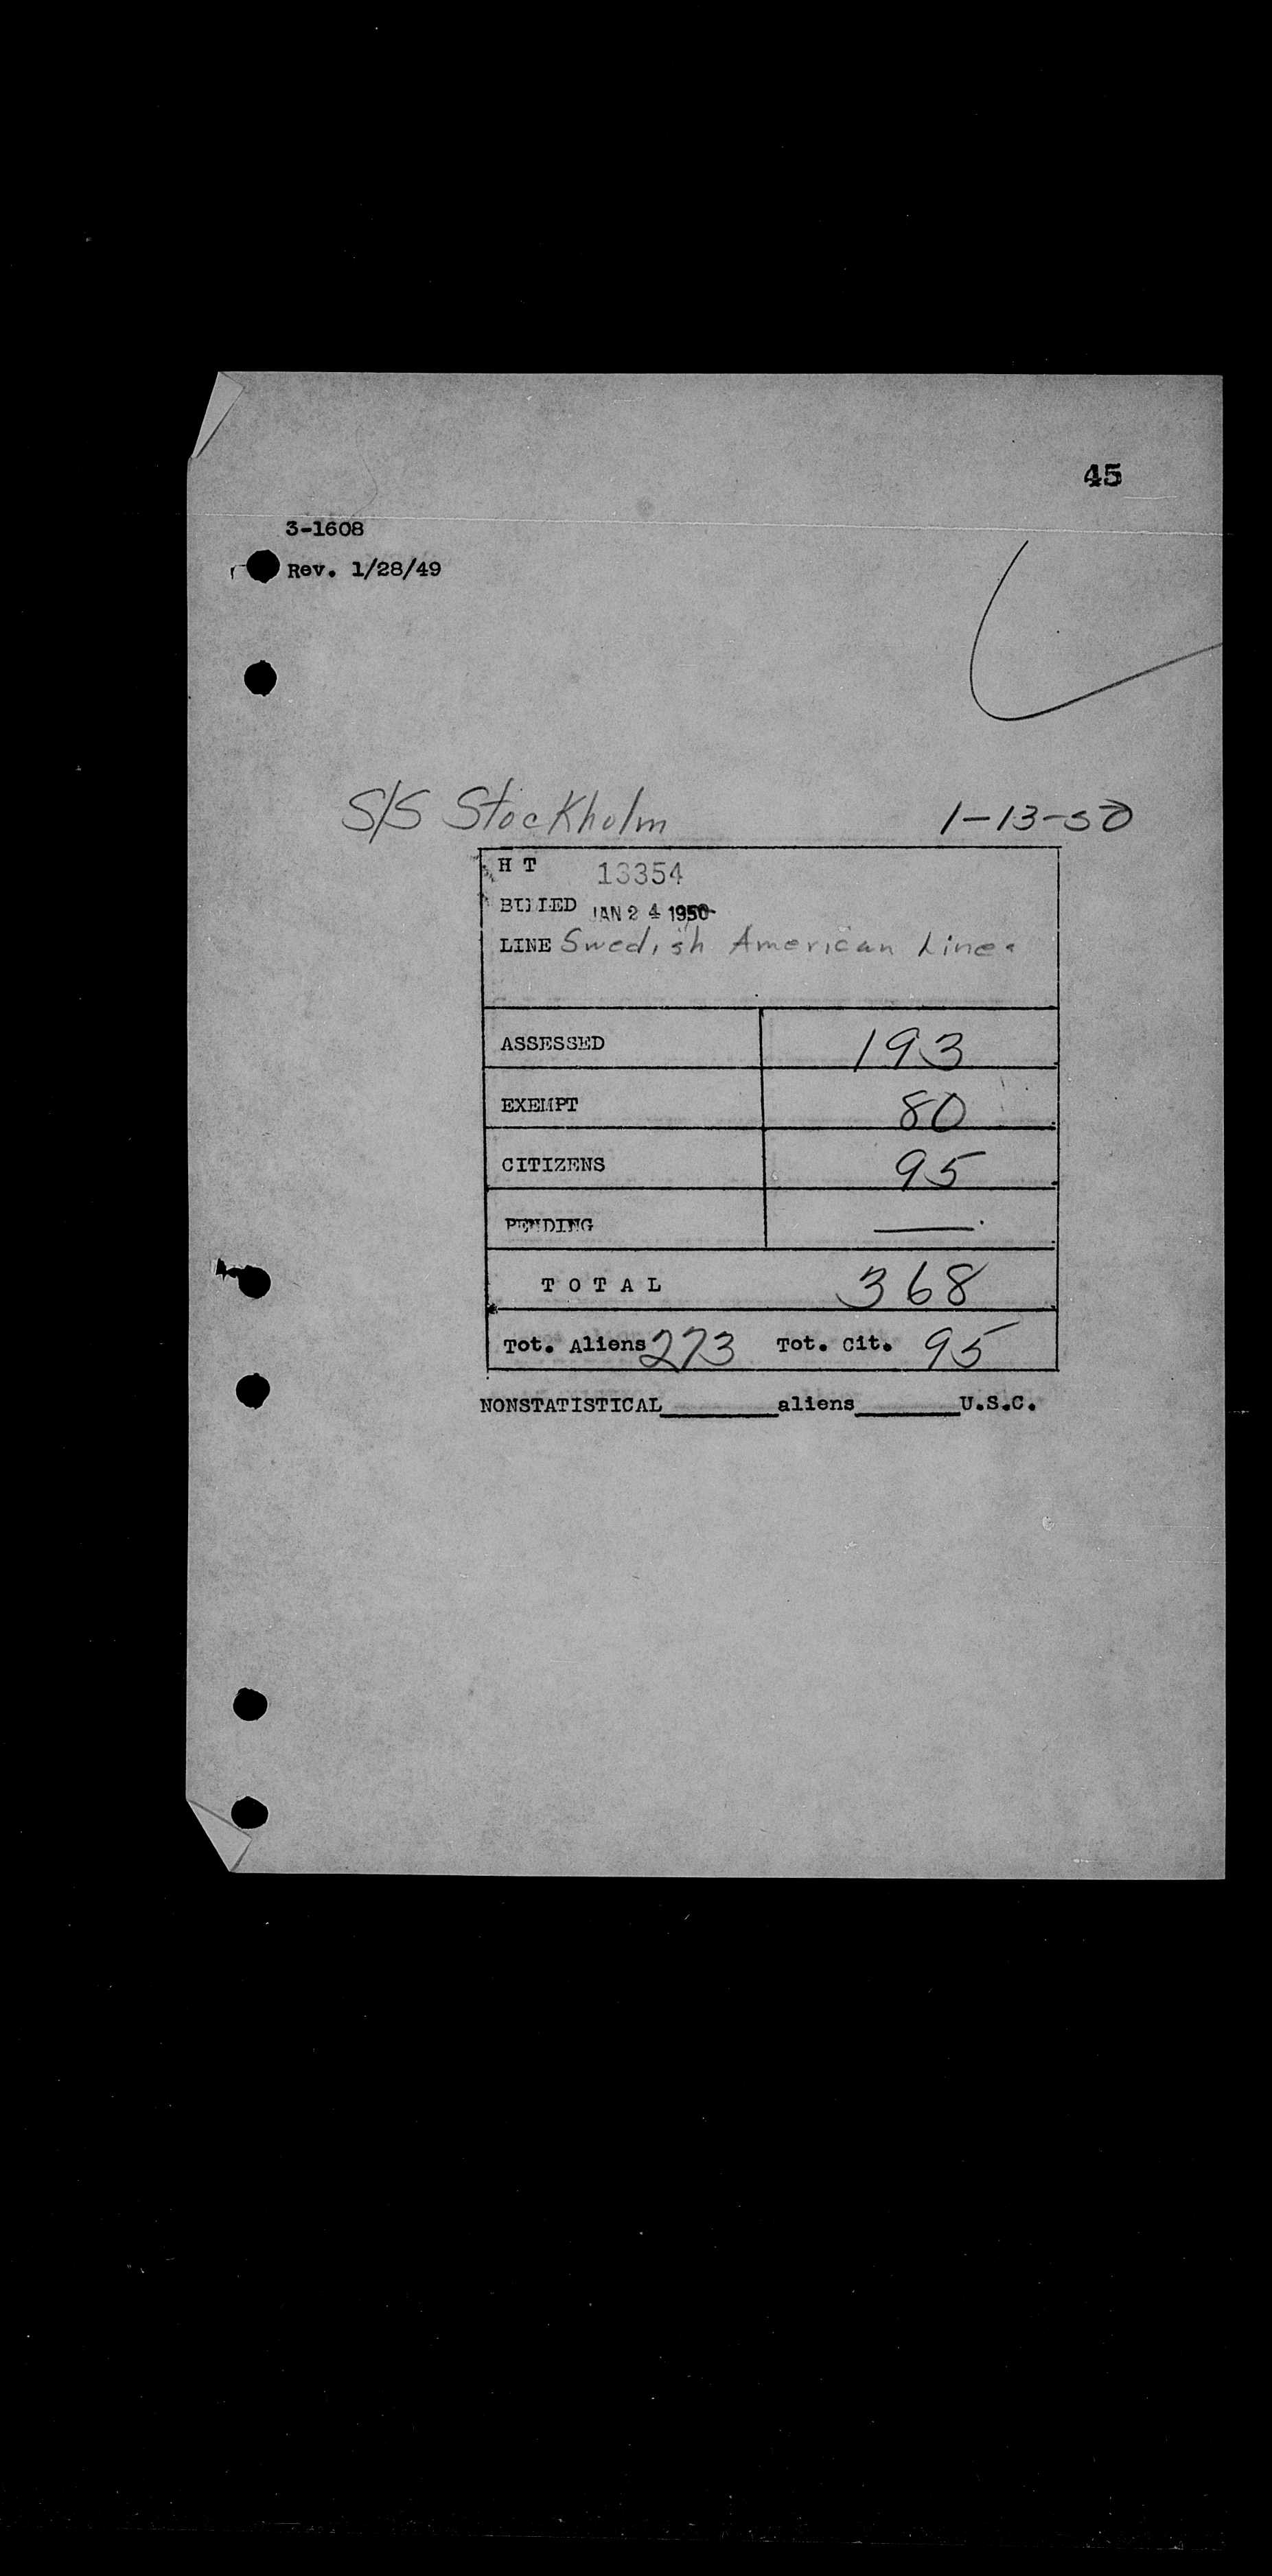 45
3-1608
Rev. 1/28/49
S/S Stockholm 1-13-50
H T 13354
BILLED JAN 24 1950
LINE Swedish American Line
ASSESSED 193
EXEMPT 80
CITIZENS 95
PENDING —
T O T A L 368
Tot. Aliens 273 Tot. Cit. 95
NONSTATISTICAL________aliens_______U.S.C.